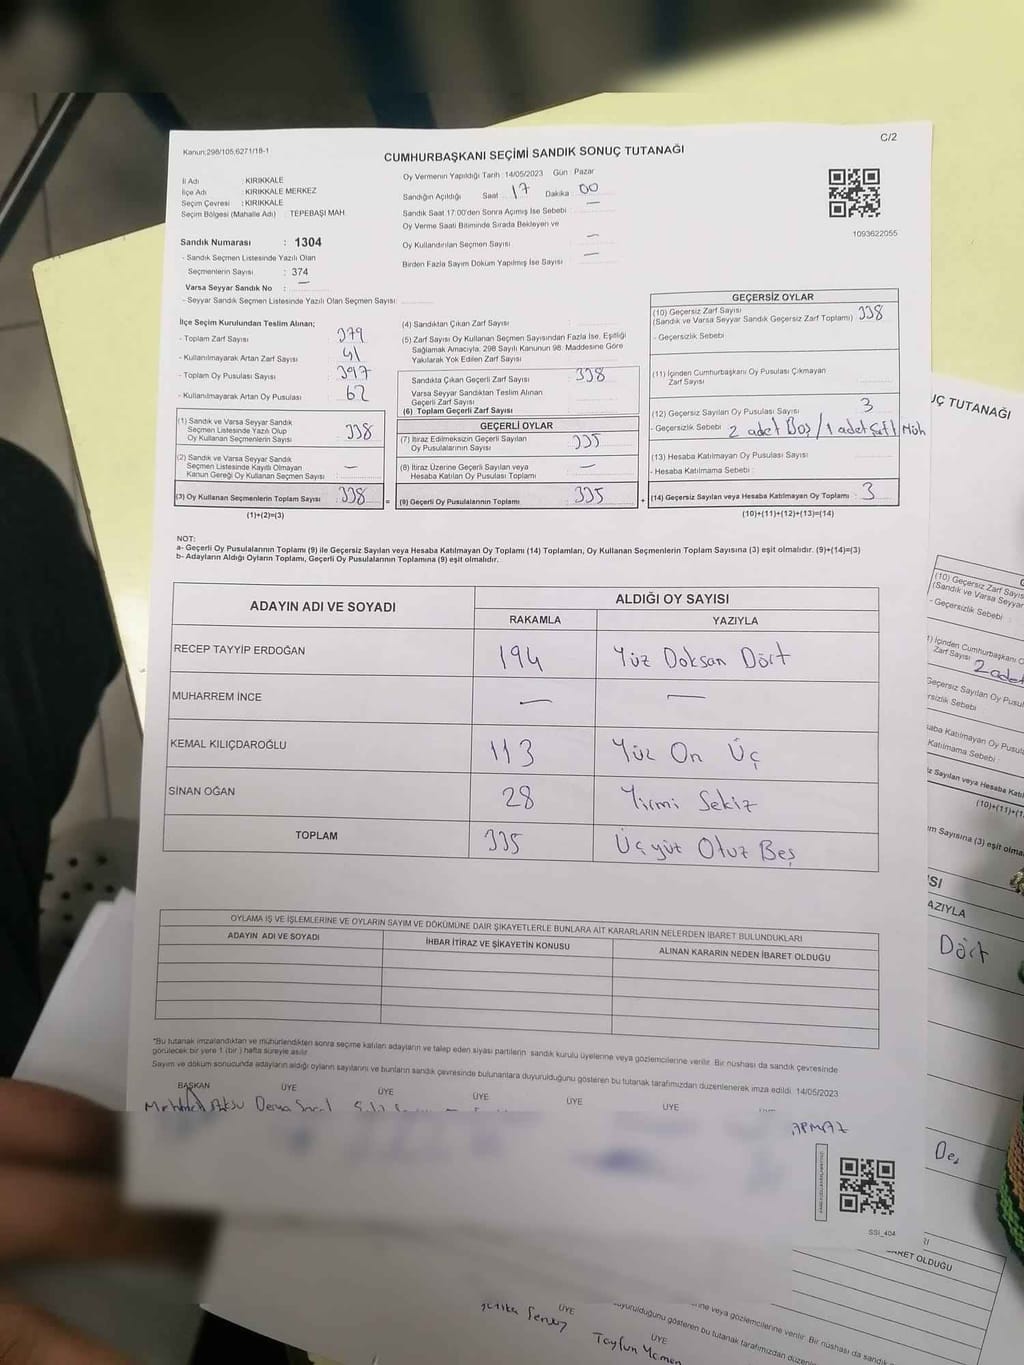 C/2
Kanun:298/105,6271/18-1
CUMHURBAŞKANI SEÇİMİ SANDIK SONUÇ TUTANAĞI
İl Adı : KIRIKKALE
İlçe Adı : KIRIKKALE MERKEZ
Seçim Çevresi : KIRIKKALE
Seçim Bölgesi (Mahalle Adı) : TEPEBAŞI MAH.
Sandık Numarası : 1304
- Sandık Seçmen Listesinde Yazılı Olan
Seçmenlerin Sayısı : 374
Varsa Seyyar Sandık No : —
- Seyyar Sandık Seçmen Listesinde Yazılı Olan Seçmen Sayısı:
Oy Vermenin Yapıldığı Tarih :14/05/2023 Gün : Pazar
Sandığın Açıldığı Saat 17 Dakika 00
Sandık Saat 17:00'den Sonra Açımış İse Sebebi : —
Oy Verme Saati Bitiminde Sırada Bekleyen ve
Oy Kullandırılan Seçmen Sayısı : —
Birden Fazla Sayım Döküm Yapılmış İse Sayısı : —
1093622055
İlçe Seçim Kurulundan Teslim Alınan;
- Toplam Zarf Sayısı : 379
- Kullanılmayarak Artan Zarf Sayısı : 41
- Toplam Oy Pusulası Sayısı : 397
- Kullanılmayarak Artan Oy Pusulası : 62
(1) Sandık ve Varsa Seyyar Sandık
Seçmen Listesinde Yazılı Olup
Oy Kullanan Seçmenlerin Sayısı : 338
(2) Sandık ve Varsa Seyyar Sandık
Seçmen Listesinde Kayıtlı Olmayan
Kanun Gereği Oy Kullanan Seçmen Sayısı : —
(3) Oy Kullanan Seçmenlerin Toplam Sayısı : 338
(1)+(2)=(3)
(4) Sandıktan Çıkan Zarf Sayısı :
(5) Zarf Sayısı Oy Kullanan Seçmen Sayısından Fazla İse, Eşitliği
Sağlamak Amacıyla, 298 Sayılı Kanunun 98. Maddesine Göre
Yakılarak Yok Edilen Zarf Sayısı :
Sandıkta Çıkan Geçerli Zarf Sayısı : 338
Varsa Seyyar Sandıktan Teslim Alınan
Geçerli Zarf Sayısı :
(6) Toplam Geçerli Zarf Sayısı :
GEÇERLİ OYLAR
(7) İtiraz Edilmeksizin Geçerli Sayılan
Oy Pusulalarının Sayısı : 335
(8) İtiraz Üzerine Geçerli Sayılan veya
Hesaba Katılan Oy Pusulası Toplamı : —
= (9) Geçerli Oy Pusulalarının Toplamı : 335
GEÇERSİZ OYLAR
(10) Geçersiz Zarf Sayısı
(Sandık ve Varsa Seyyar Sandık Geçersiz Zarf Toplamı) : 338
- Geçersizlik Sebebi :
(11) İçinden Cumhurbaşkanı Oy Pusulası Çıkmayan
Zarf Sayısı :
(12) Geçersiz Sayılan Oy Pusulası Sayısı : 3
- Geçersizlik Sebebi : 2 adet Boş / 1 adet Müh
(13) Hesaba Katılmayan Oy Pusulası Sayısı :
- Hesaba Katılmama Sebebi :
+ (14) Geçersiz Sayılan veya Hesaba Katılmayan Oy Toplamı : 3
(10)+(11)+(12)+(13)=(14)
NOT:
a- Geçerli Oy Pusulalarının Toplamı (9) ile Geçersiz Sayılan veya Hesaba Katılmayan Oy Toplamı (14) Toplamları, Oy Kullanan Seçmenlerin Toplam Sayısına (3) eşit olmalıdır. (9)+(14)=(3)
b- Adayların Aldığı Oyların Toplamı, Geçerli Oy Pusulalarının Toplamına (9) eşit olmalıdır.
ADAYIN ADI VE SOYADI ALDIĞI OY SAYISI
RAKAMLA YAZIYLA
RECEP TAYYİP ERDOĞAN 194 Yüz Doksan Dört
MUHARREM İNCE — —
KEMAL KILIÇDAROĞLU 113 Yüz On Üç
SİNAN OĞAN 28 Yirmi Sekiz
TOPLAM 335 Üçyüz Otuz Beş
OYLAMA İŞ VE İŞLEMLERİNE VE OYLARIN SAYIM VE DÖKÜMÜNE DAİR ŞİKAYETLERLE BUNLARA AİT KARARLARIN NELERDEN İBARET BULUNDUKLARI
ADAYIN ADI VE SOYADI İHBAR İTİRAZ VE ŞİKAYETİN KONUSU ALINAN KARARIN NEDEN İBARET OLDUĞU
*Bu tutanak imzalandıktan ve mühürlendikten sonra seçime katılan adayların ve talep eden siyasi partilerin sandık kurulu üyelerine veya gözlemcilerine verilir. Bir nüshası da sandık çevresinde
görülecek bir yere 1 (bir ) hafta süreyle asılır.
Sayım ve döküm sonucunda adayların aldığı oyların sayılarını ve bunların sandık çevresinde bulunanlara duyurulduğunu gösteren bu tutanak tarafımızdan düzenlenerek imza edildi. 14/05/2023
BAŞKAN ÜYE ÜYE ÜYE ÜYE ÜYE
SSI_404
UÇ TUTANAĞI
(10) Geçersiz Zarf Sayıs
(Sandık ve Varsa Seyyar
- Geçersizlik Sebebi :
İçinden Cumhurbaşkanı O
Zarf Sayısı
2 adet
Geçersiz Sayılan Oy Pusul
rsizlik Sebebi
aba Katılmayan Oy Pusula
Katılmama Sebebi :
(10)+(11)+(1
ım Sayısına (3) eşit olma
ISI
AZIYLA
Dört
RET OLDUĞU
ÜYE
Tayfun
ÜYE